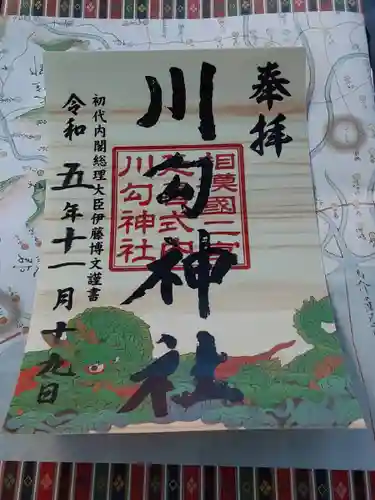 奉拝
川勾神社
相模國二宮
延喜式内
川勾神社
初代内閣総理大臣伊藤博文謹書
令和五年十一月十九日